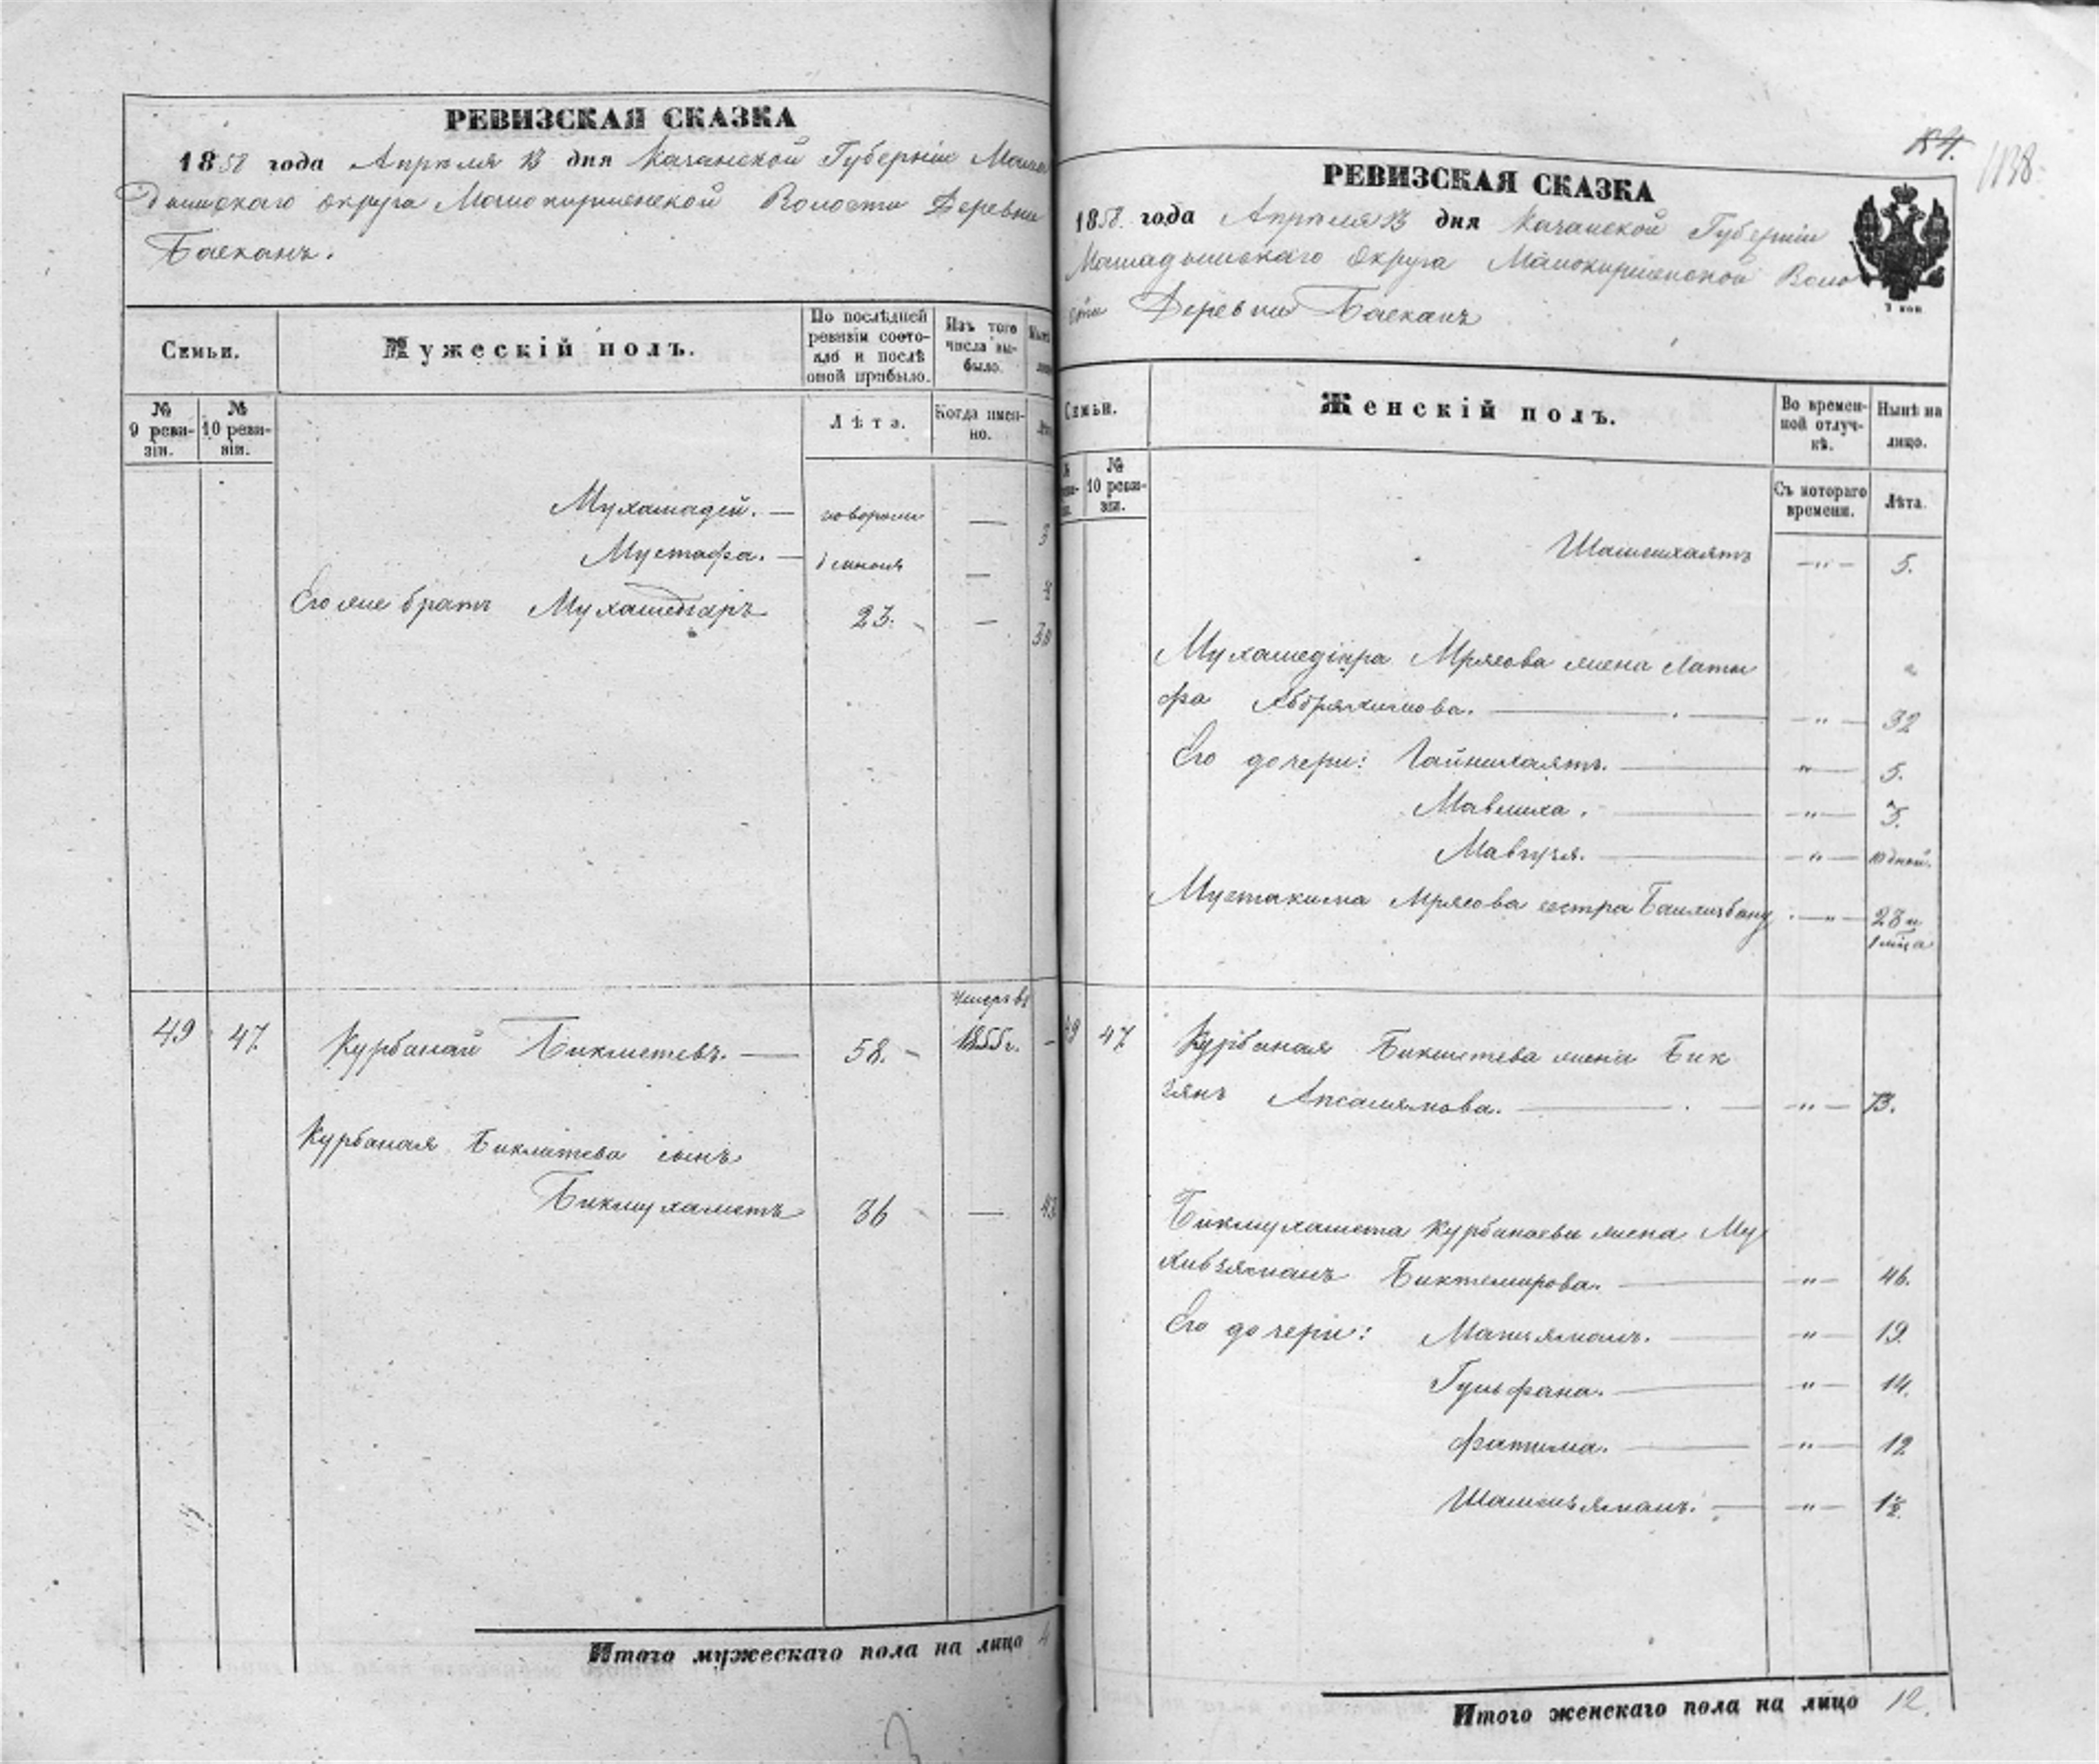 РЕВИЗСКАЯ СКАЗКА
1858 года Апреля 13 дня Казанской Губернiи Мама
дышскаго округа Малокирменской Волости Деревни
Баскань.
Семьи.
Мужескiй полъ.
По послѣдней ревизiи состояло и послѣ оной прибыло.
Изъ того числа выбыло.
№ 9 ревизiи.
№ 10 ревизiи.
Лѣта.
Когда именно.
Мухамадей. — новорожн — 3
Мустафа. —
Его же братъ Мухамедiаръ 23. — 30
49 47. Курбанай Бикметевъ. — 58. — 1855 г. —
Курбаная Бикметева сынъ
Бикмухаметъ 36 — 43
Итого мужескаго пола на лицо 4
84.
1138.
РЕВИЗСКАЯ СКАЗКА
1858. года Апреля 13 дня Казанской Губернiи
Мамадышскаго Округа Малокирменской Воло
сти Деревни Баскань
Семьи.
Женскiй полъ.
Во временной отлучкѣ.
Нынѣ на лицо.
№ 10 ревизiи.
Съ котораго времени.
Лѣта.
Шамсихаятъ — " — 5.
Мухамедiяра Мрясова жена Лати
фа Абдряхимова. — " — 32
Его дочери: Гайнихаятъ. — " — 5.
Мавлиха. — " — 3.
Мавзуя. — " — 10 дней.
Мустакима Мрясова сестра — " — 23 и
49 47 Курбаная Бикметева жена Бик
зянъ Апсалямова. — " — 73.
Бикмухамета Курбанаева жена Му
хибзяманъ Биктемирова. — " — 46.
Его дочери: — " — 19.
Гульфана. — " — 14.
Фатима. — " — 12
Шамсизяманъ. — " — 1½.
Итого женскаго пола на лицо 12.